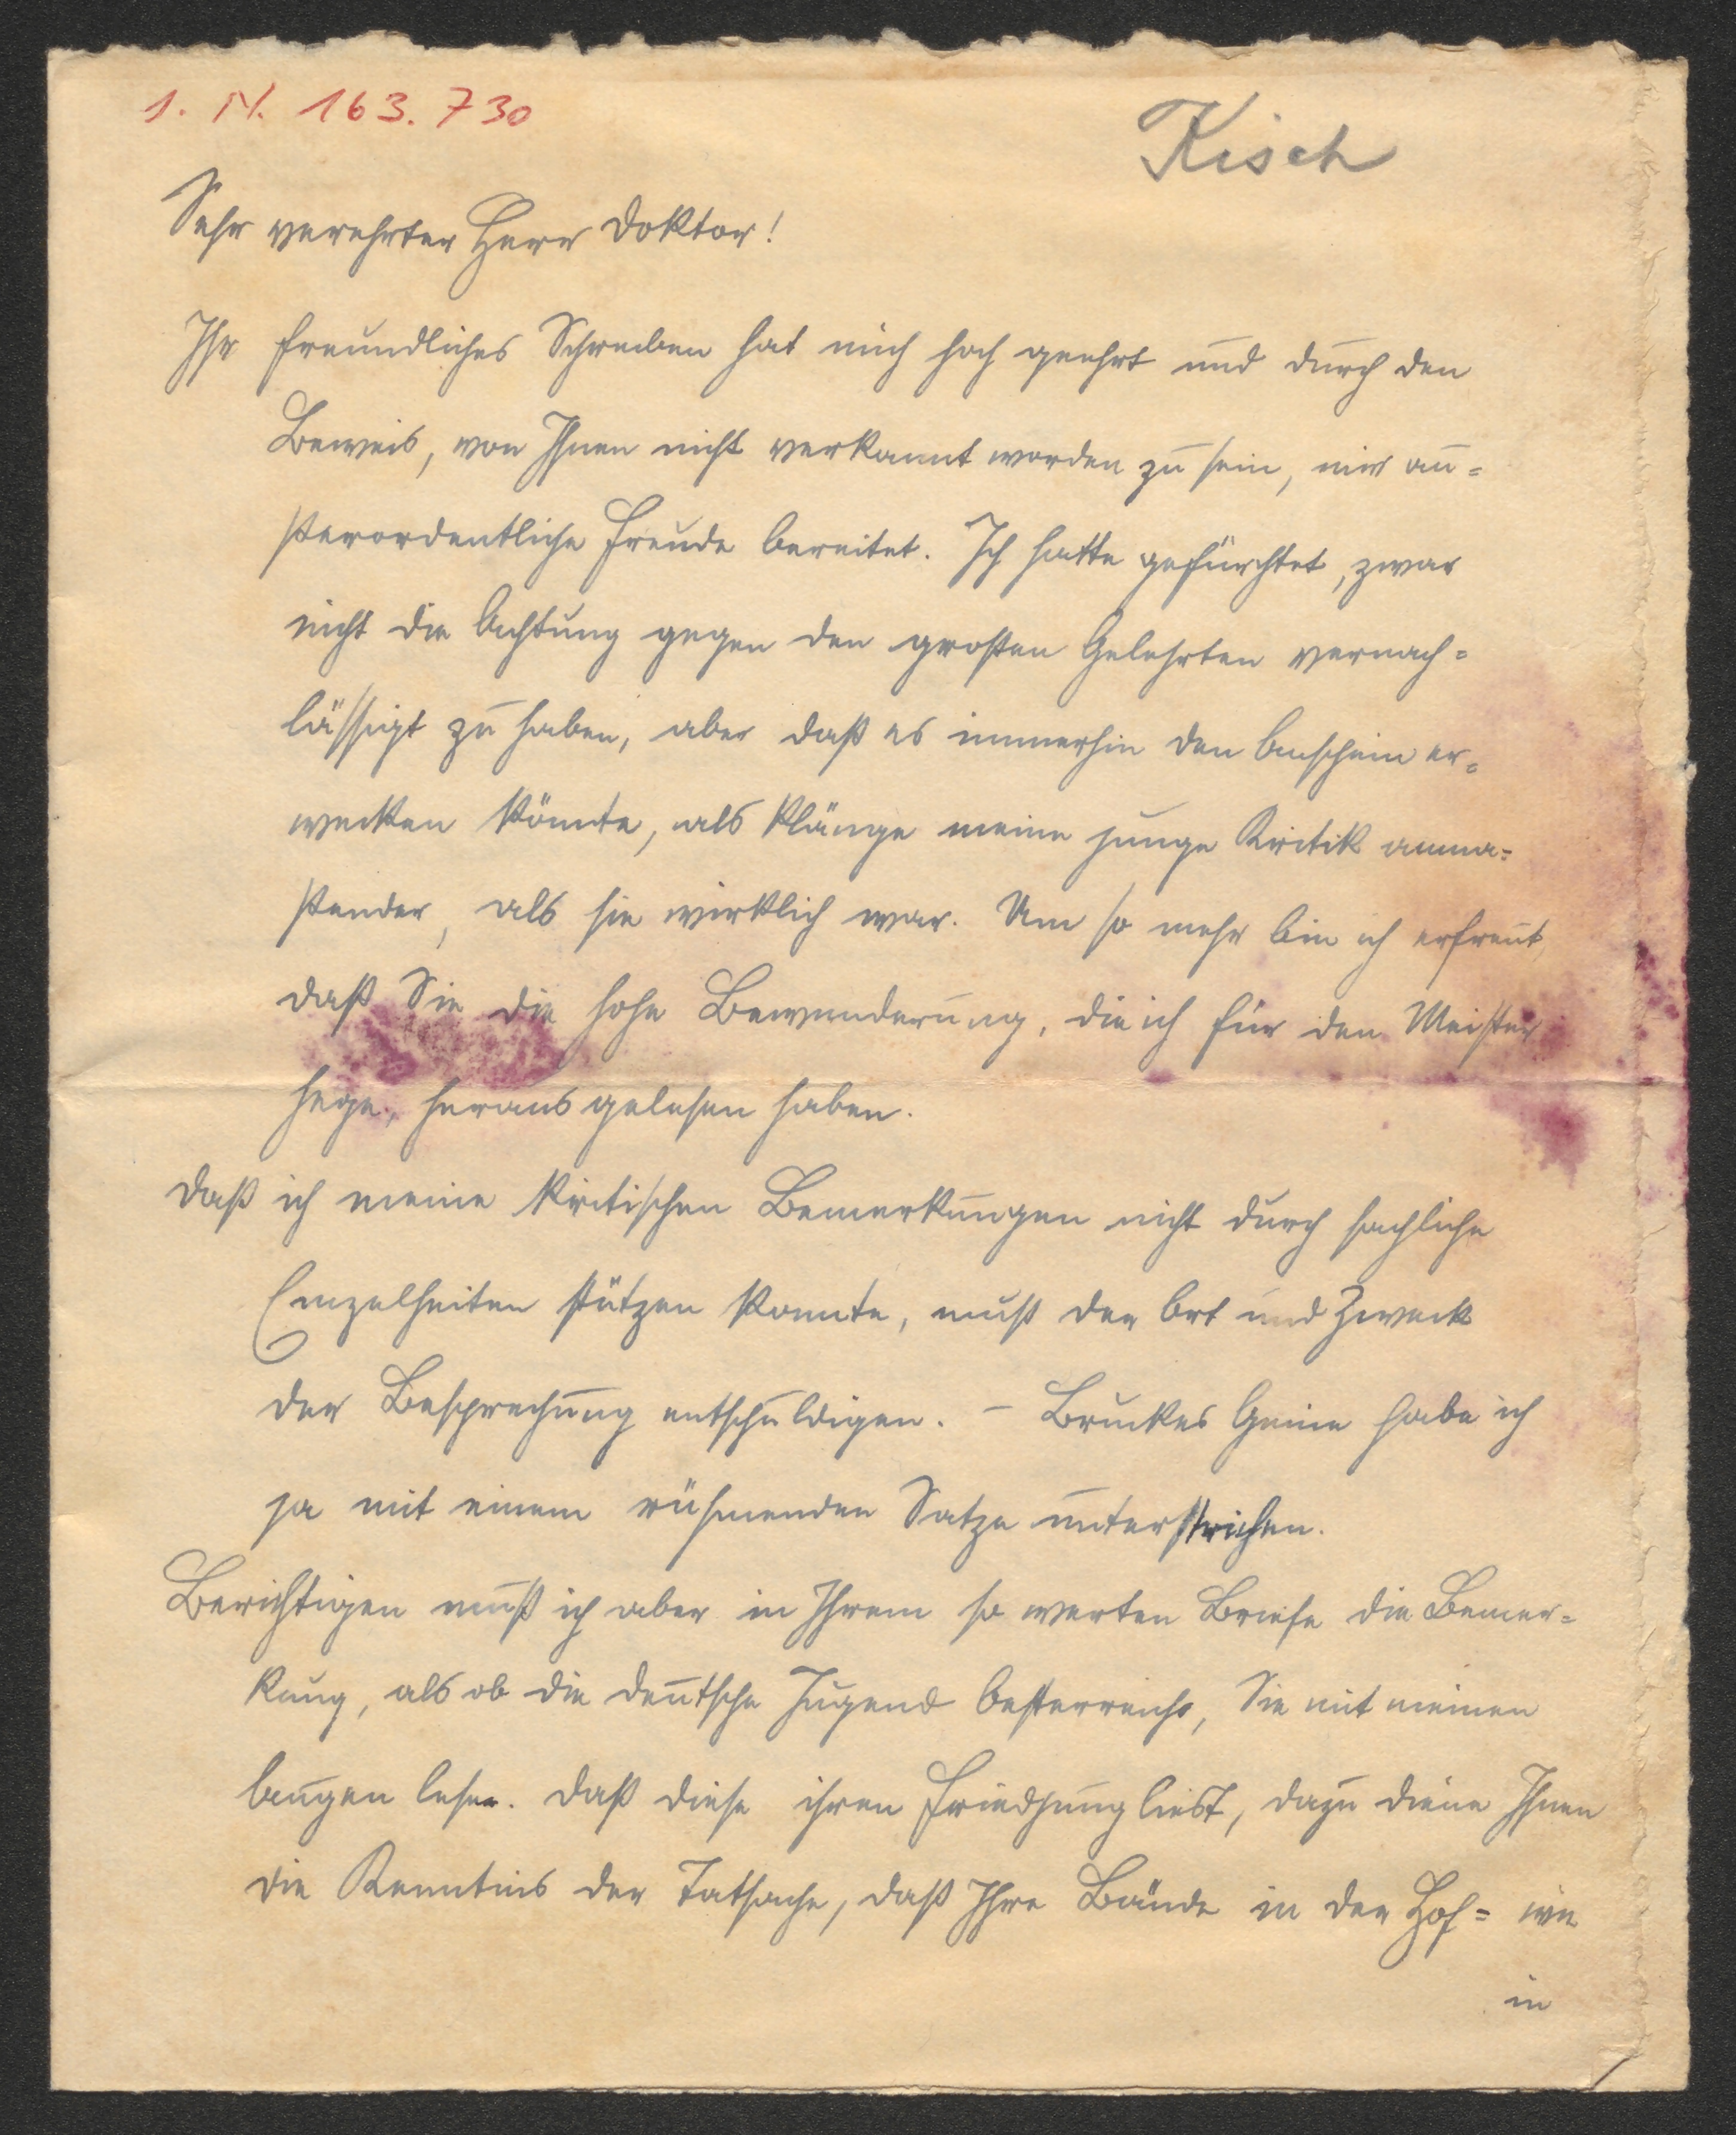 1. N. 163.730
Kisch
Sehr verehrter Herr Doktor!
Ihr freundliches Schreiben hat mich hoch geehrt und durch den
Beweis, von Ihnen nicht verkannt worden zu sein, mir au=
sserordentliche Freude bereitet. Ich hatte gefürchtet, zwar
nicht die Achtung gegen den grossen Gelehrten vernach=
lässigt zu haben, aber daß es immerhin den Anschein er=
wecken könnte, als klänge meine junge Kritik anma=
ssender, als sie wirklich war. Um so mehr bin ich erfreut,
daß Sie die hohe Bewunderung, die ich für den Meister
hege, herausgelesen haben.
Daß ich meine kritischen Bemerkungen nicht durch sachliche
Einzelheiten stützen konnte, muß der Ort und Zweck
der Besprechung entschuldigen. – Bruckes Genie habe ich
ja mit einem rühmenden Satze unterstrichen.
Berichtigen muß ich aber in Ihrem so werten Briefe die Bemer=
kung, als ob die deutsche Jugend Oesterreichs, Sie mit meinen
Augen lesen. Daß diese ihren Friedjung liest, dazu diene Ihnen
die Kenntnis der Tatsache, daß Ihre Bände in der Hof= wie
in